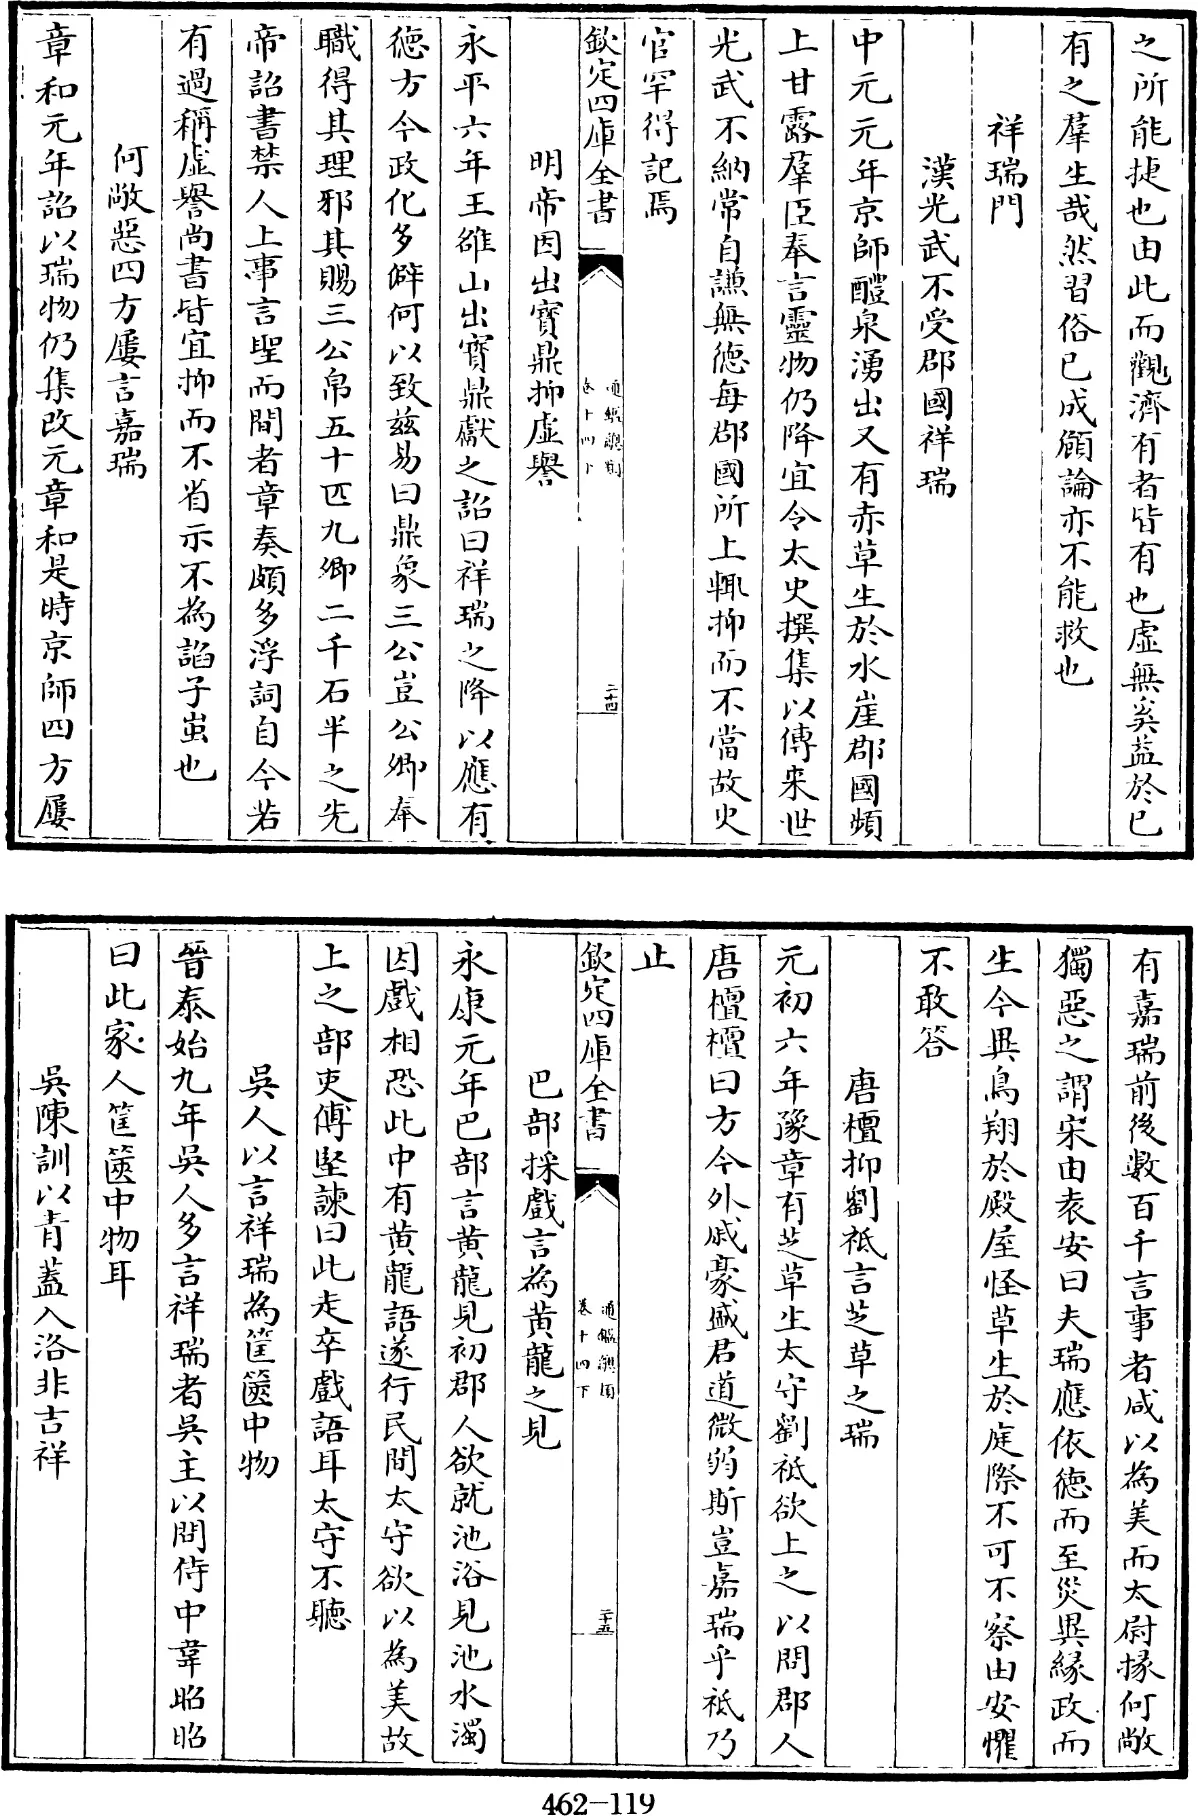 之所能捷也由此而觀濟有者皆有也虛無奚益於已
有之羣生哉然習俗已成願論亦不能救也
祥瑞門
漢光武不受郡國祥瑞
中元元年京師醴泉湧出又有赤草生於水崖郡國頻
上甘露羣臣奉言靈物仍降宜令太史撰集以傳来世
光武不納常自謙無徳每郡國所上輒抑而不當故史
官罕得記焉
欽定四庫全書
卷十四下
二十四
明帝因出寶鼎抑虛譽
永平六年王雒山出寶鼎獻之詔曰祥瑞之降以應有
徳方今政化多僻何以致兹易曰鼎象三公豈公卿奉
職得其理邪其賜三公帛五十匹九卿二千石半之先
帝詔書禁人上事言聖而間者章奏頗多浮詞自今若
有過稱虛譽尚書皆宜抑而不省示不為諂子蚩也
何敞惡四方屢言嘉瑞
章和元年詔以瑞物仍集改元章和是時京師四方屢
有嘉瑞前後數百千言事者咸以為美而太尉掾何敞
獨惡之謂宋由袁安曰夫瑞應依徳而至災異緣政而
生今異鳥翔於殿屋怪草生於庭際不可不察由安懼
不敢答
唐檀抑劉祗言芝草之瑞
元初六年豫章有芝草生太守劉祗欲上之以問郡人
唐檀檀曰方今外戚豪盛君道微弱斯豈嘉瑞乎祗乃
止
欽定四庫全書
卷十四下
二十五
巴部採戲言為黄龍之見
永康元年巴部言黄龍見初郡人欲就池浴見池水濁
因戲相恐此中有黄龍語遂行民間太守欲以為美故
上之部吏傅堅諫曰此走卒戲語耳太守不聽
吳人以言祥瑞為筐篋中物
晉泰始九年吳人多言祥瑞者吳主以問侍中韋昭昭
曰此家人筐篋中物耳
吳陳訓以青蓋入洛非吉祥
462-119